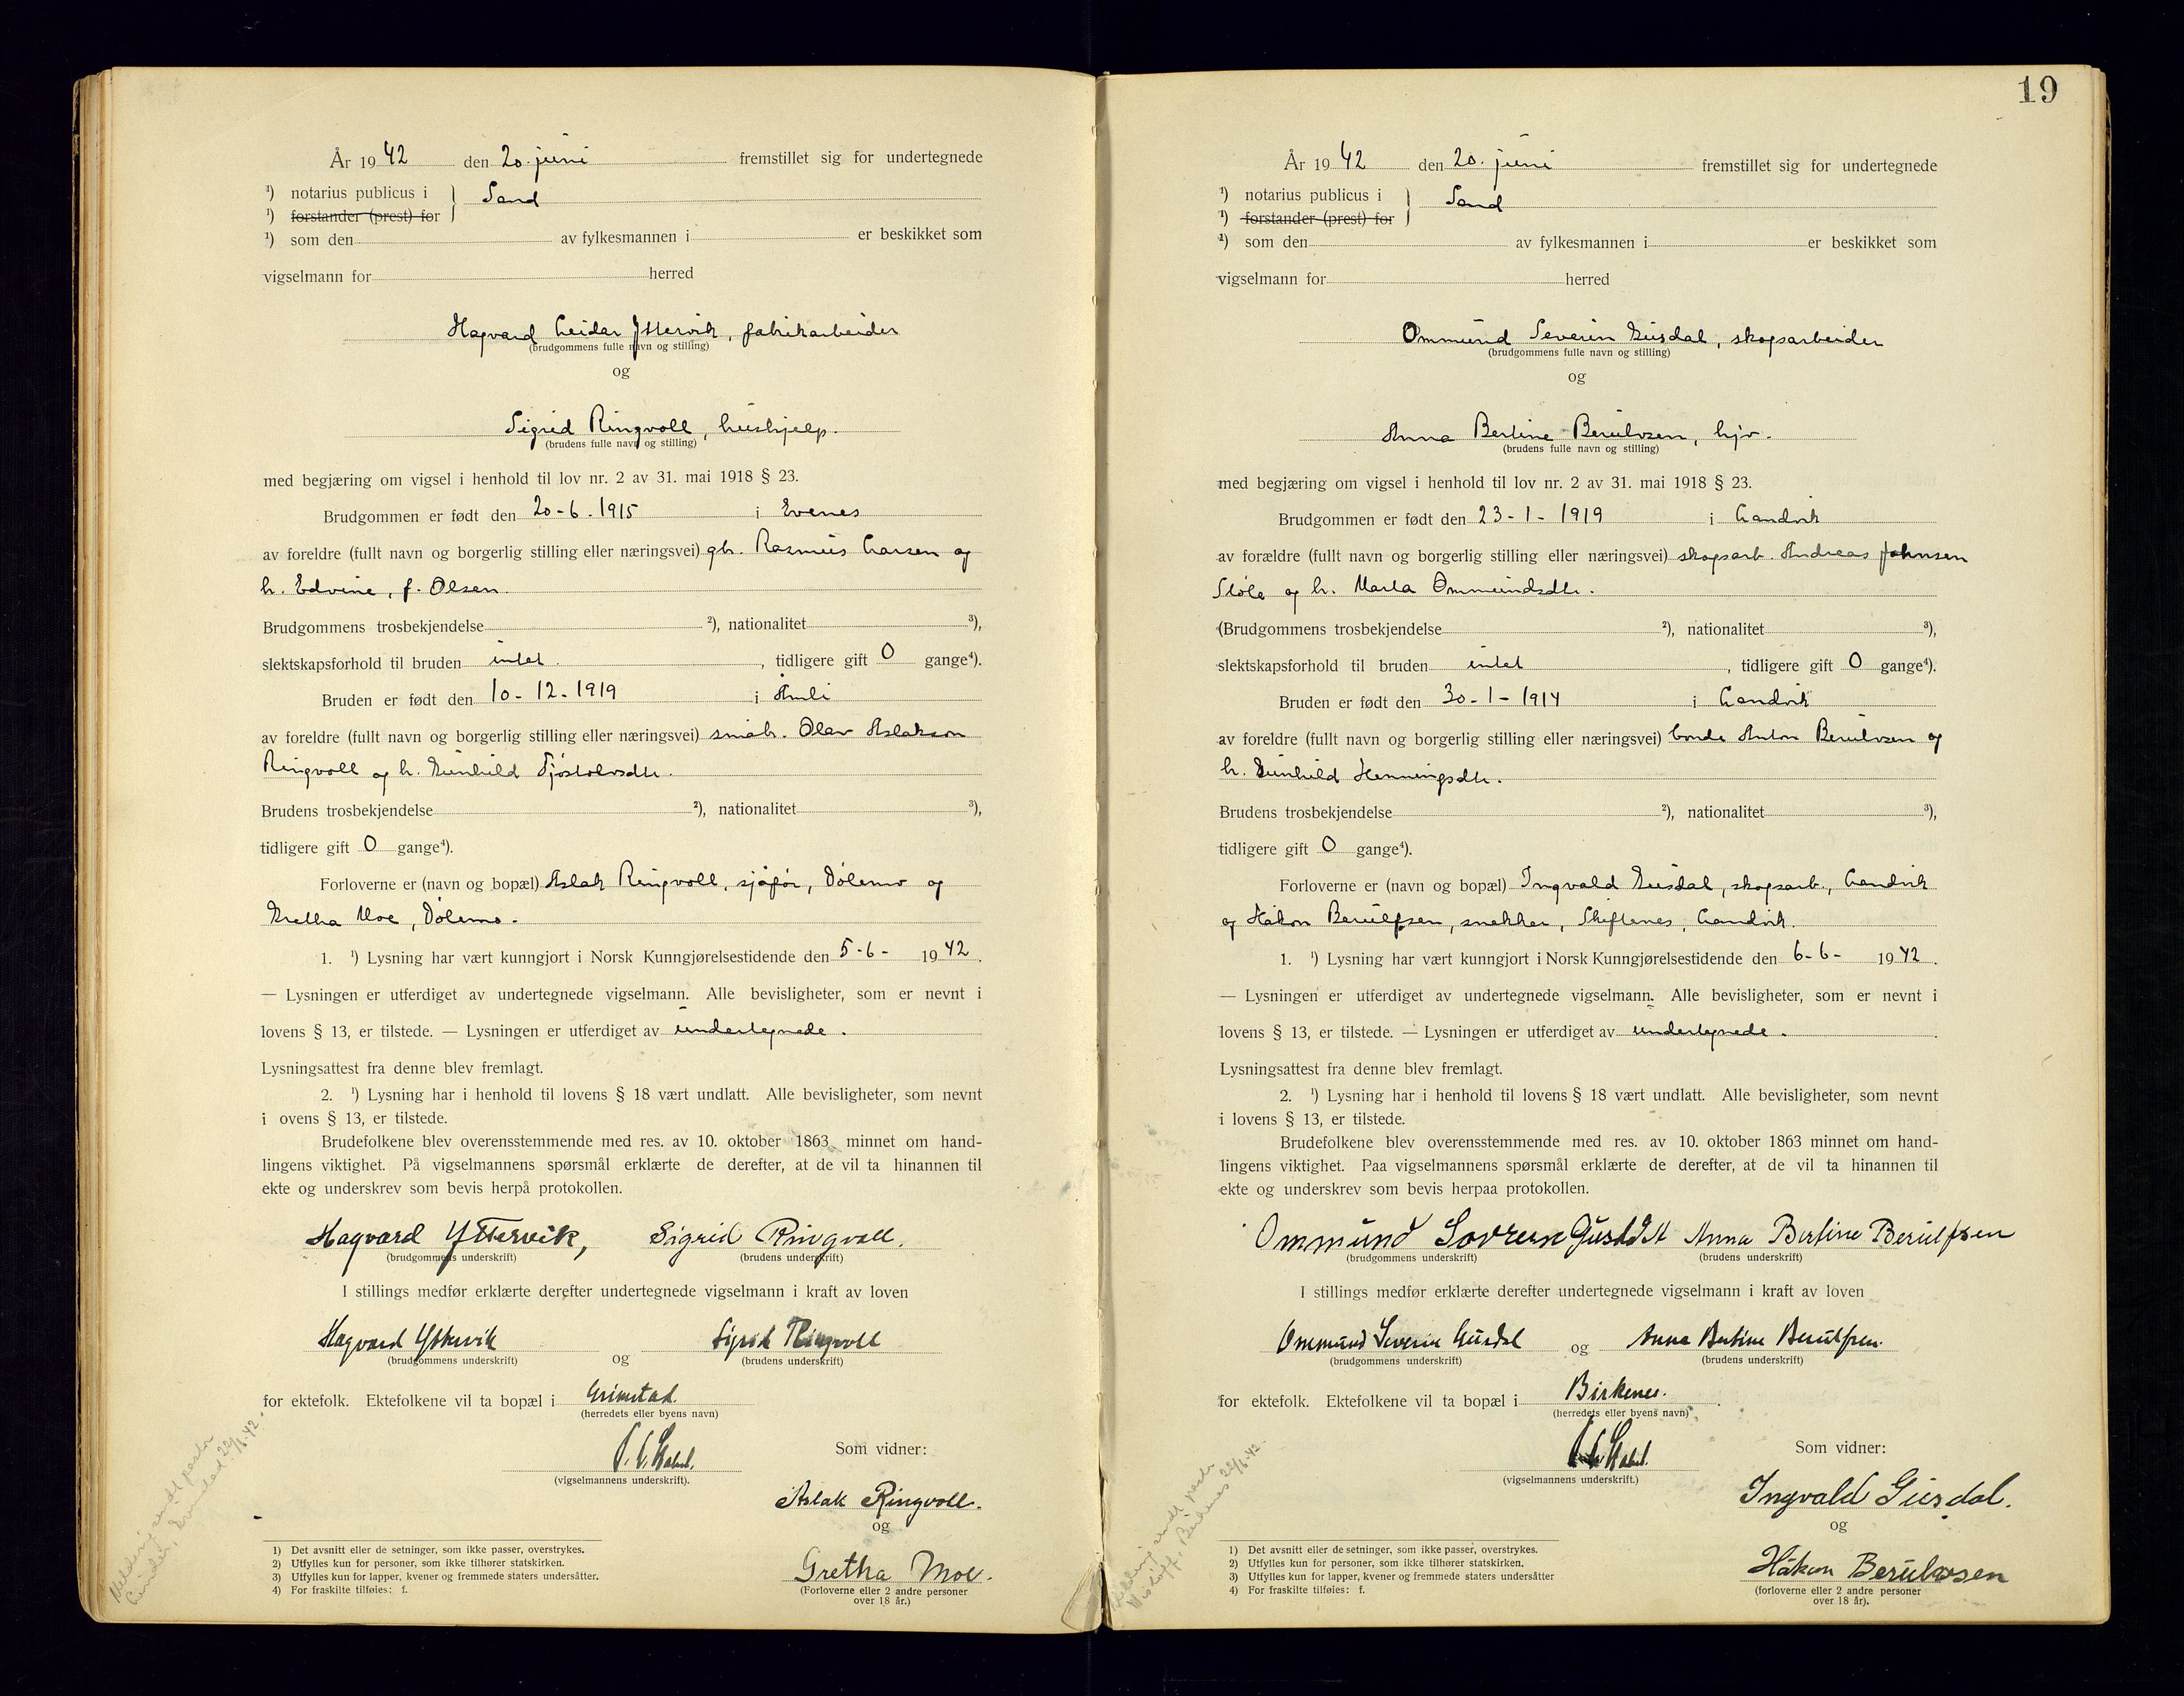 År 1942 den 20. juni fremstillet sig for undertegnede
¹) notarius publicus i } Sand
¹) forstander (prest) for
¹) som den av fylkesmannen i er beskikket som
vigselmann for herred
Hagvard Leidar Yttervik, fabrikarbeider
(brudgommens fulle navn og stilling)
og
Sigrid Ringvoll, hushjelp.
(brudens fulle navn og stilling)
med begjæring om vigsel i henhold til lov nr. 2 av 31. mai 1918 § 23.
Brudgommen er født den 20-6-1915 i Evenes
av foreldre (fullt navn og borgerlig stilling eller næringsvei) gbr. Rasmus Larsen og
h. Edvine, f. Olsen.
Brudgommens trosbekjendelse ²), nationalitet ³),
slektskapsforhold til bruden intet, tidligere gift 0 gange⁴).
Bruden er født den 10-12-1919 i Åmli
av foreldre (fullt navn og borgerlig stilling eller næringsvei) småbr. Olav Aslakson
Ringvoll og h. Gunhild Tjøstolvsdtr.
Brudens trosbekjendelse ²), nationalitet ³),
tidligere gift 0 gange⁴).
Forloverne er (navn og bopæl) Aslak Ringvoll, sjåfør, Dølemo og
Gretha Moe, Dølemo.
1. ¹) Lysning har vært kunngjort i Norsk Kunngjørelsestidende den 5-6- 1942.
— Lysningen er utferdiget av undertegnede vigselmann. Alle bevisligheter, som er nevnt i
lovens § 13, er tilstede. — Lysningen er utferdiget av undertegnede.
Lysningsattest fra denne blev fremlagt.
2. ¹) Lysning har i henhold til lovens § 18 vært undlatt. Alle bevisligheter, som nevnt
i ovens § 13, er tilstede.
Brudefolkene blev overensstemmende med res. av 10. oktober 1863 minnet om hand-
lingens viktighet. På vigselmannens spørsmål erklærte de derefter, at de vil ta hinannen til
ekte og underskrev som bevis herpå protokollen.
Hagvard Yttervik, Sigrid Ringvoll.
(brudgommens underskrift) (brudens underskrift)
I stillings medfør erklærte derefter undertegnede vigselmann i kraft av loven
Hagvard Yttervik og Sigrid Ringvoll
(brudgommens underskrift) (brudens underskrift)
for ektefolk. Ektefolkene vil ta bopæl i Grimstad.
(herredets eller byens navn)
Som vidner:
(vigselmannens underskrift).
Aslak Ringvoll.
og
Gretha Moe.
(Forloverne eller 2 andre personer
over 18 år.)
Melding sendt
22/6-42.
1) Det avsnitt eller de setninger, som ikke passer, overstrykes.
2) Utfylles kun for personer, som ikke tilhører statskirken.
3) Utfylles kun for lapper, kvener og fremmede staters undersåtter.
4) For fraskilte tilføies: f.
19
År 1942 den 20. juni fremstillet sig for undertegnede
¹) notarius publicus i } Sand
¹) forstander (prest) for
¹) som den av fylkesmannen i er beskikket som
vigselmann for herred
Ommund Severin Gusdal, skogsarbeider
(brudgommens fulle navn og stilling)
og
Anna Bertine Berulvsen, hjv.
(brudens fulle navn og stilling)
med begjæring om vigsel i henhold til lov nr. 2 av 31. mai 1918 § 23.
Brudgommen er født den 23-1-1919 i Landvik
av forældre (fullt navn og borgerlig stilling eller næringsvei) skogsarb. Andreas Johnsen
Støle og h. Marta Ommundsdtr.
(Brudgommens trosbekjendelse ²), nationalitet ³),
slektskapsforhold til bruden intet, tidligere gift 0 gange⁴).
Bruden er født den 30-1-1914 i Landvik
av foreldre (fullt navn og borgerlig stilling eller næringsvei) bonde Anton Berulvsen og
h. Gunhild Henningsdtr.
Brudens trosbekjendelse ²), nationalitet ³),
tidligere gift 0 gange⁴).
Forloverne er (navn og bopæl) Ingvald Gusdal, skogsarb., Landvik
og Håkon Berulfsen, snekker, Skiftenes, Landvik.
1. ¹) Lysning har vært kunngjort i Norsk Kunngjørelsestidende den 6-6- 1942.
— Lysningen er utferdiget av undertegnede vigselmann. Alle bevisligheter, som er nevnt i
lovens § 13, er tilstede. — Lysningen er utferdiget av undertegnede.
Lysningsattest fra denne blev fremlagt.
2. ¹) Lysning har i henhold til lovens § 18 vært undlatt. Alle bevisligheter, som nevnt
i lovens § 13, er tilstede.
Brudefolkene blev overensstemmende med res. av 10. oktober 1863 minnet om hand-
lingens viktighet. Paa vigselmannens spørsmål erklærte de derefter, at de vil ta hinannen til
ekte og underskrev som bevis herpaa protokollen.
Ommund Severin Gusdal Anna Bertine Berulfsen
(brudgommens underskrift) (brudens underskrift)
I stillings medfør erklærte derefter undertegnede vigselmann i kraft av loven
Ommund Severin Gusdal og Anna Bertine Berulfsen.
(brudgommens underskrift) (brudens underskrift)
for ektefolk. Ektefolkene vil ta bopæl i Birkenes.
(herredets eller byens navn)
Som vidner:
(vigselmannens underskrift.)
Ingvald Gusdal.
og
Håkon Berulvsen
(forloverne eller 2 andre personer
over 18 år).
Melding sendt
Birkenes 22/6-42.
1) Det avsnitt eller de setninger, som ikke passer, overstrykes.
2) Utfylles kun for personer, som ikke tilhører statskirken.
3) Utfylles kun for lapper, kvener og fremmede staters undersåtter
4) For fraskilte tilføies: f.